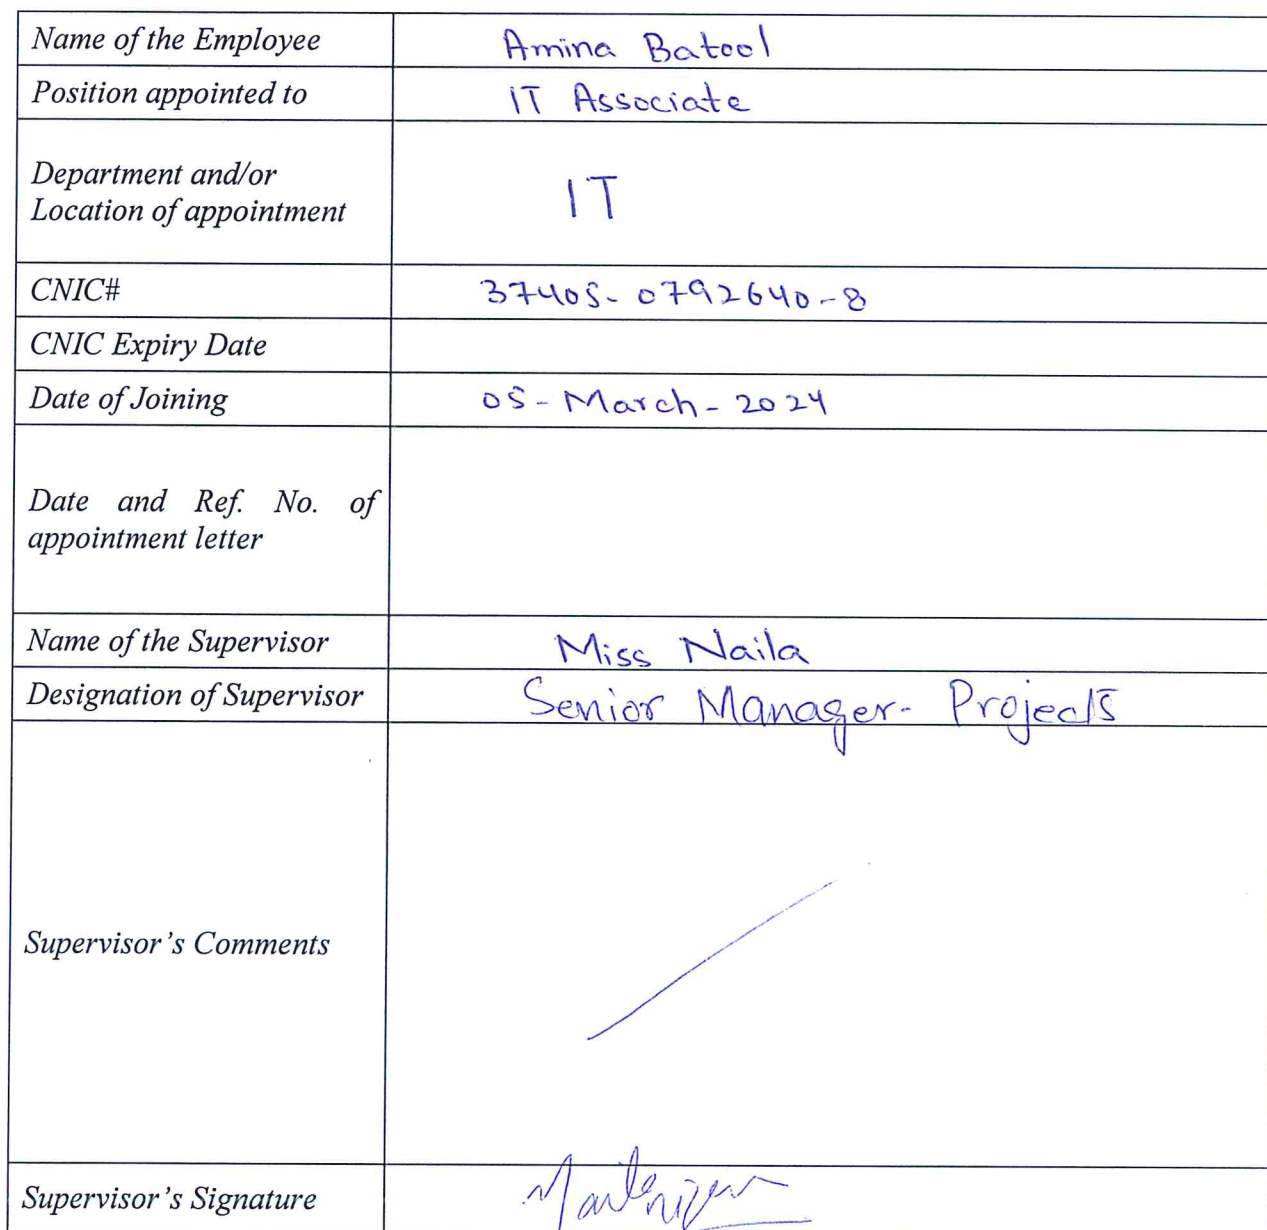 Name of the Employee Amina Batool
Position appointed to IT Associate
Department and/or
Location of appointment IT
CNIC# 37405-0792640-8
CNIC Expiry Date
Date of Joining 05-March-2024
Date and Ref. No. of
appointment letter
Name of the Supervisor Miss Naila
Designation of Supervisor Senior Manager- Projects
Supervisor's Comments
Supervisor's Signature